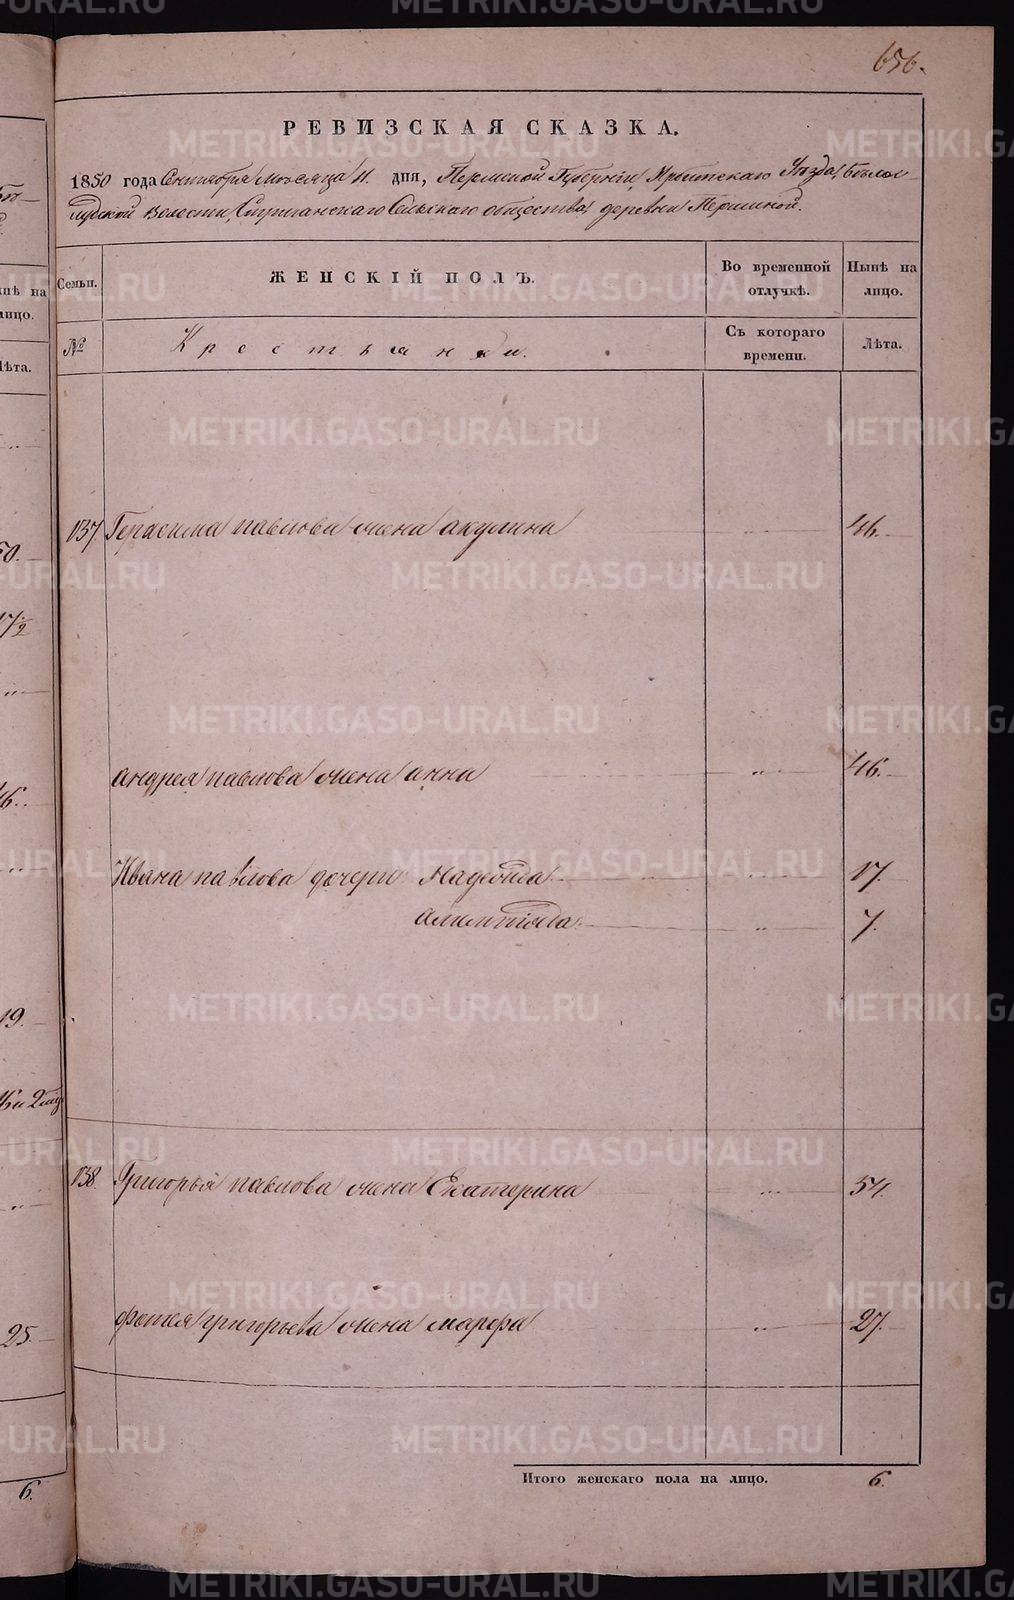 656.
РЕВИЗСКАЯ СКАЗКА.
1850 года Сентября Месяца 11. дня, Пермской Губернiи, Ирбитскаго Уѣзда, Бѣлослудской Волости, Сельскаго общества, деревни Першиной.
Семьи. ЖЕНСКIЙ ПОЛЪ. Во временной отлучкѣ. Нынѣ на лицо.
№ Крестьянки. Съ котораго времени. Лѣта.
137. Герасима павлова жена акулина 46.
андрея павлова жена анна 46.
Ивана павлова дочери Надежда 17.
Олимпiада 7.
138. Григорья павлова жена Екатерина 54.
фотея григорьева жена марфа 27.
Итого женскаго пола на лицо. 6.
METRIKI.GASO-URAL.RU